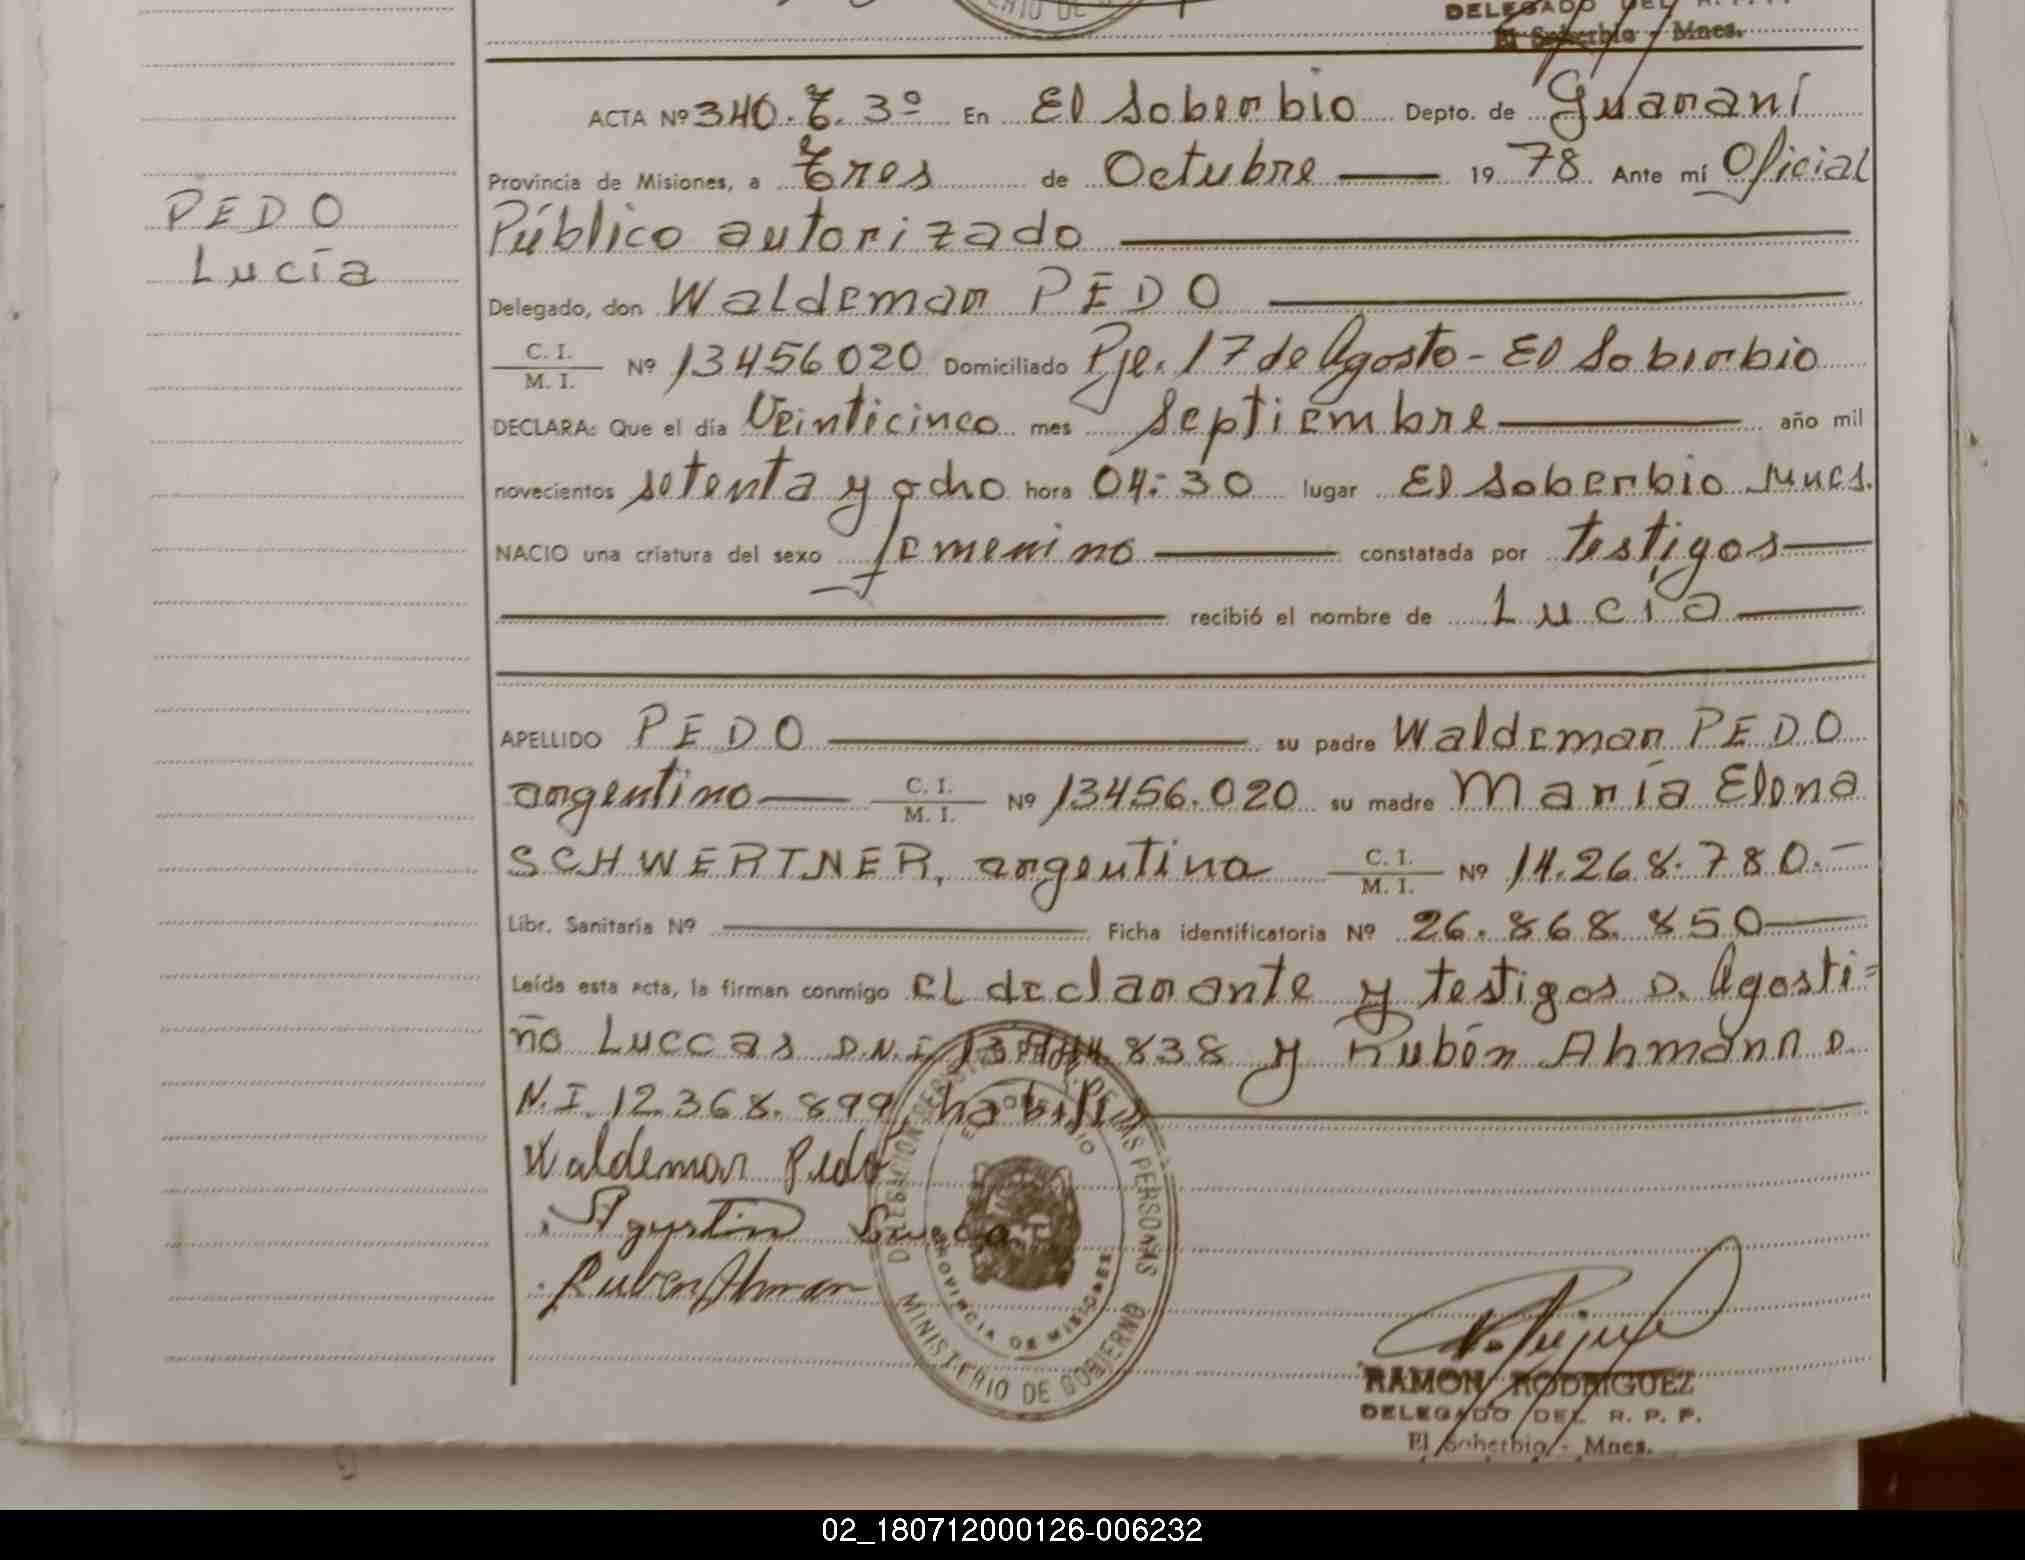 DELEGADO DEL R. P. P.
El Soberbio - Mnes.
ACTA Nº 340. T. 3º En El Soberbio Depto. de Guaraní
Provincia de Misiones, a Tres de Octubre 19 78 Ante mí Oficial
Público autorizado
PEDO
Lucía
Delegado, don Waldemar PEDO
C. I.
M. I. Nº 13456020 Domiciliado Pje. 17 de Agosto - El Soberbio
DECLARA: Que el día Veinticinco mes Septiembre año mil
novecientos setenta y ocho hora 04:30 lugar El Soberbio Mnes.
NACIO una criatura del sexo femenino constatada por testigos
recibió el nombre de Lucía
APELLIDO PEDO su padre Waldemar PEDO
argentino C. I.
M. I. Nº 13456.020 su madre María Elena
SCHWERTNER, argentina C. I.
M. I. Nº 14.268.780.-
Libr. Sanitaria Nº Ficha identificatoria Nº 26.868.850
Leída esta acta, la firman conmigo el declarante y testigos D. Agosti=
ño Luccas D.N.I. 838 y Rubén Ahmann D.
N.I. 12.368.899, habilis
Waldemar Pedo
Agustin
Ruben Ahman
DELEGACION DE LAS PERSONAS
EL SOBERBIO
PROVINCIA DE MISIONES
MINISTERIO DE GOBIERNO
RAMON RODRIGUEZ
DELEGADO DEL R. P. P.
El Soberbio - Mnes.
02_180712000126-006232